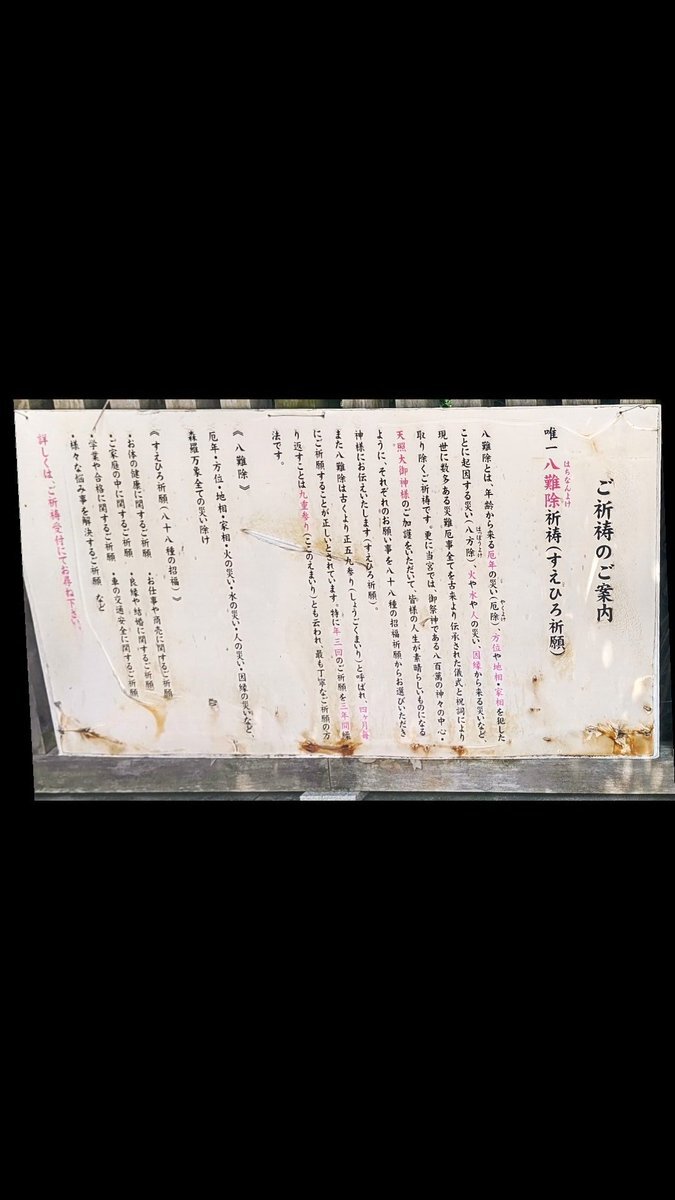 ご祈祷のご案内
唯一八難除祈祷(すえひろ祈願)
はちなんよけ
八難除とは、年齢から来る厄年の災い(厄除)、方位や地相・家相を犯した
やくよけ
ことに起因する災い(八方除)、火や水や人の災い、因縁から来る災いなど、
はっぽうよけ
現世に数多ある災難厄事全てを古来より伝承された儀式と祝詞により
取り除くご祈祷です。更に当宮では、御祭神である八百萬の神々の中心・
天照大御神様のご加護をいただいて、皆様の人生が素晴らしいものになる
ように、それぞれのお願い事を八十八種の招福祈願からお選びいただき
神様にお伝えいたします(すえひろ祈願)。
また八難除は古くより正五九参り(しょうごくまいり)と呼ばれ、四ヶ月毎
にご祈願することが正しいとされています。特に年三回のご祈願を三年間繰
り返すことは九重参り(ここのえまいり)とも云われ、最も丁寧なご祈願の方
法です。
《八難除》
厄年・方位・地相・家相・火の災い・水の災い・人の災い・因縁の災いなど、
森羅万象全ての災い除け
《すえひろ祈願(八十八種の招福)》
・お体の健康に関するご祈願 ・お仕事や商売に関するご祈願
・ご家庭の中に関するご祈願 ・良縁や結婚に関するご祈願
・学業や合格に関するご祈願 ・車の交通安全に関するご祈願
・様々な悩み事を解決するご祈願 など
詳しくは、ご祈祷受付にてお尋ね下さい。